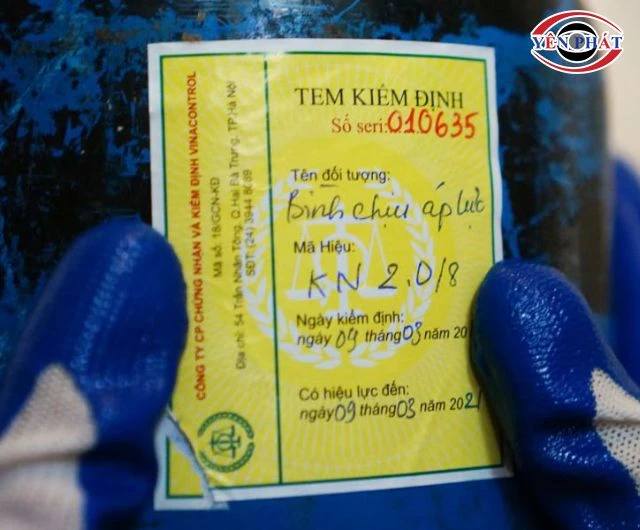 YÊN PHÁT
CÔNG TY CP CHỨNG NHẬN VÀ KIỂM ĐỊNH VINACONTROL
Mã số: 18/GCN-KĐ
Địa chỉ: 54 Trần Nhân Tông, Q.Hai Bà Trưng, TP.Hà Nội
SĐT: (24) 3944 8089
TEM KIỂM ĐỊNH
Số seri:010635
Tên đối tượng:
Bình chịu áp lực
Mã Hiệu:
KN 2,0/8
Ngày kiểm định:
ngày 09 tháng 03 năm 20
Có hiệu lực đến:
ngày 09 tháng 03 năm 2021